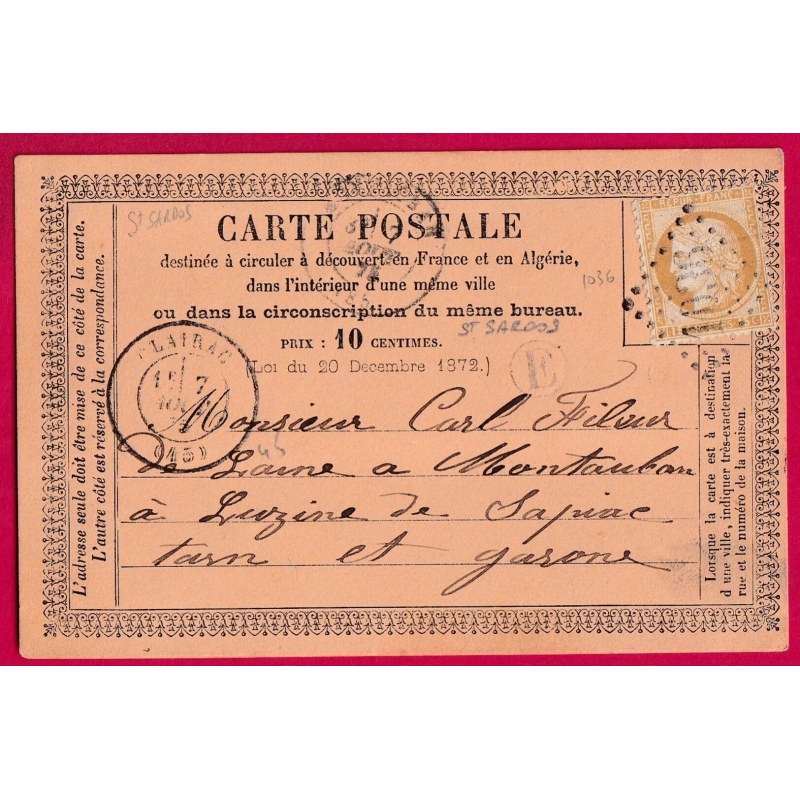 St SARDOS
CARTE POSTALE
destinée à circuler à découvert en France et en Algérie,
dans l'intérieur d'une même ville
ou dans la circonscription du même bureau.
PRIX : 10 CENTIMES.
(Loi du 20 Decembre 1872.)
1036
St SARDOS
E
REPUB FRANC
CLAIRAC
1E 7
(45)
45
Monsieur Carl Fileur
de Laine a Montauban
à Luzine de Sapiac
tarn et garone
L'adresse seule doit être mise de ce côté de la carte.
L'autre côté est réservé à la correspondance.
Lorsque la carte est à destination
d'une ville, indiquer très-exactement la
rue et le numéro de la maison.